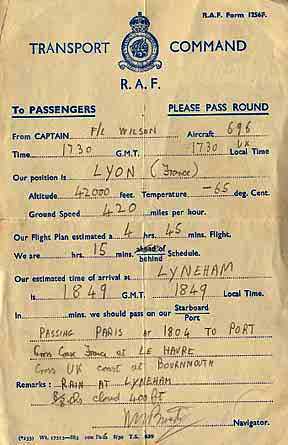 R.A.F. Form 1256F.
TRANSPORT COMMAND
R.A.F.
To PASSENGERS PLEASE PASS ROUND
From CAPTAIN F/L WILSON Aircraft 696
Time 1730 G.M.T. 1730 UK Local Time
Our position is LYON (France)
Altitude 42000 feet. Temperature -65 deg. Cent.
Ground Speed 420 miles per hour.
Our Flight Plan estimated a 4 hrs. 45 mins. Flight.
We are hrs. 15 mins. ahead of behind Schedule.
Our estimated time of arrival at LYNEHAM
is 1849 G.M.T. 1849 Local Time.
In mins. we should pass on our Starboard Port
PASSING PARIS at 1804 TO PORT
Cross Coast France at LE HAVRE
Cross UK coast at BOURNMOUTH
Remarks : RAIN AT LYNEHAM
cloud 400ft
Navigator.